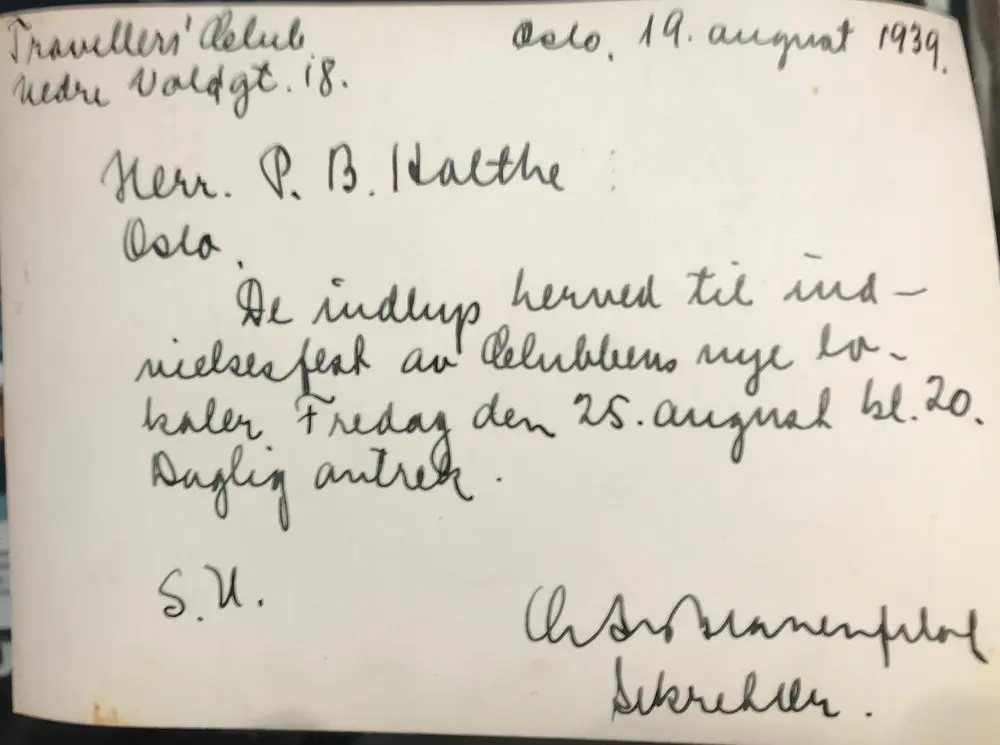 Travellers' Club Oslo, 19. august 1939.
Nedre Voldgt. 18.
Herr. P. B. Halthe
Oslo.
De indbys herved til ind-
vielsesfest av Clubbens nye lo-
kaler Fredag den 25. august kl. 20.
Daglig antrek.
S.U.
Sekretær.